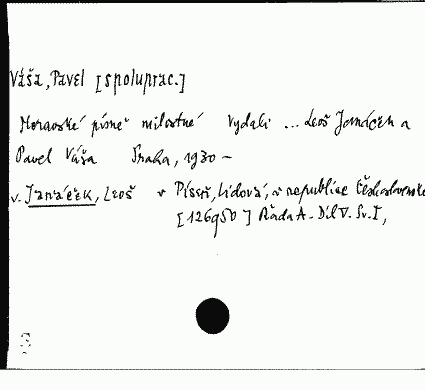 Váša, Pavel [spoluprac.]
Moravské písně milostné vydali ... Leoš Janáček a
Pavel Váša Praha, 1930 -
v. Janáček, Leoš v Písni, Lidová, v republice Československé
[126950] Řada A. Díl V. Sv. I,